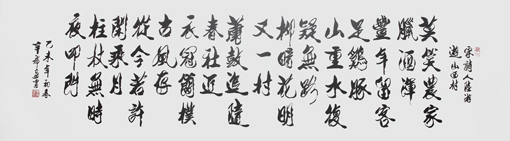 宋詩人陸游
遊山西村
莫笑農家
臘酒渾
豐年留客
足鷄豚
山重水復
疑無路
柳暗花明
又一村
簫鼓追隨
春社近
衣冠簡樸
古風存
從今若許
閑乘月
拄杖無時
夜叩門
乙未年初春